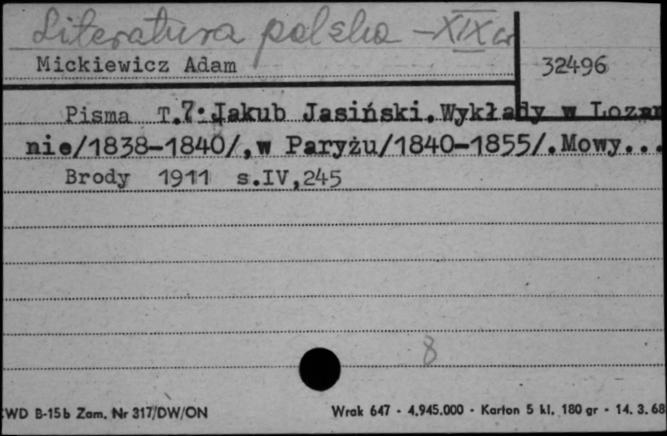 Literatura polska - XIX w
Mickiewicz Adam
32496
Pisma T.7: Jakub Jasiński. Wykłady w Lozan
nie/1838-1840/, w Paryżu/1840-1855/. Mowy...
Brody 1911 s.IV,245
8
CWD B-15b Zam. Nr 317/DW/ON
Wrak 647 - 4.945.000 - Karton 5 kl. 180 gr - 14. 3. 68